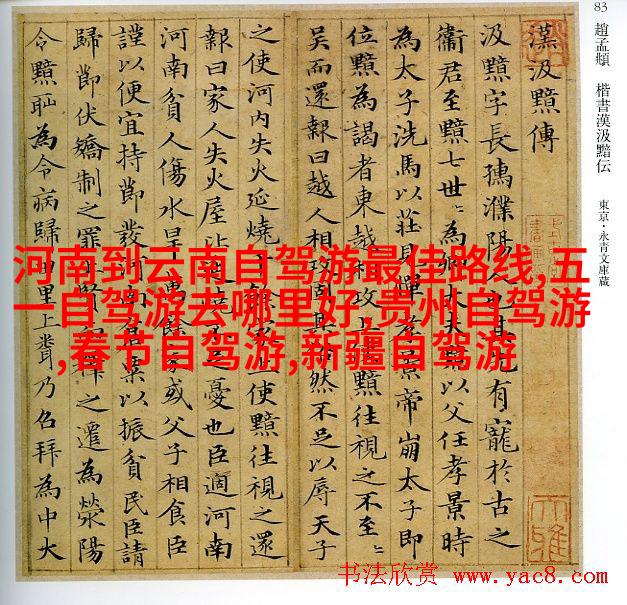 83 趙孟頫 楷書漢汲黯伝 東京·永青文庫蔵
漢汲黯傳
汲黯字長孺濮陽人也其先有寵於古之
衛君至黯七世〻為卿大夫黯以父任孝景時
為太子洗馬以莊見憚孝景帝崩太子即
位黯為謁者東越相攻上使黯往視之不至〻
吴而還報曰越人相攻固其俗然不足以辱天子
之使河内失火延燒千餘家上使黯往視之還
報曰家人失火屋比延燒不足憂也臣適河南
河南貧人傷水旱萬餘家或父子相食臣
謹以便宜持節發河南倉粟以振貧民臣請
歸節伏矯制之罪上賢而釋之遷為滎陽
令黯恥為令病歸田里上聞乃召拜為中大
河南到云南自驾游最佳路线,五
一自驾游去哪里好,贵州自驾游
,春节自驾游,新疆自驾游
书法欣赏 www.yac8.com